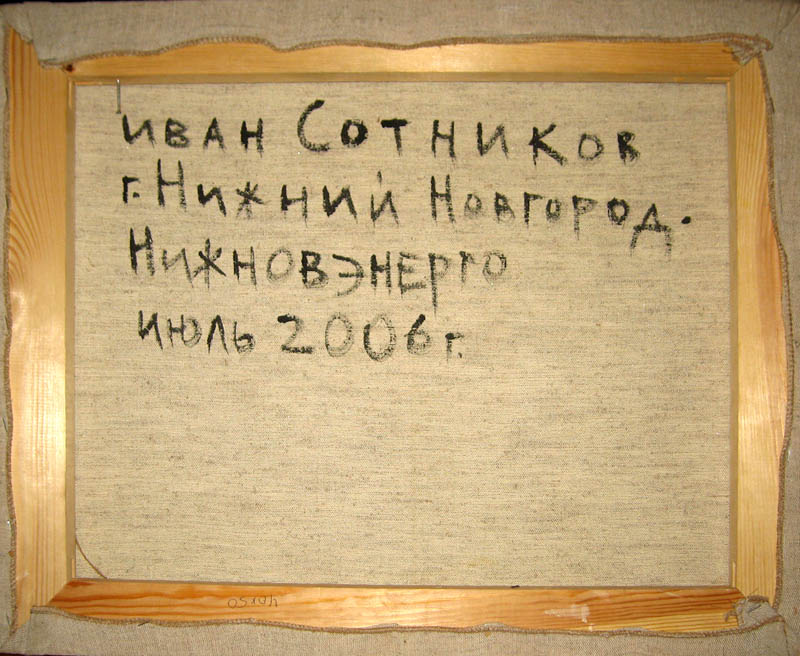 иван Сотников
г. Нижний Новгород.
Нижновэнерго
июль 2006 г.
40x50